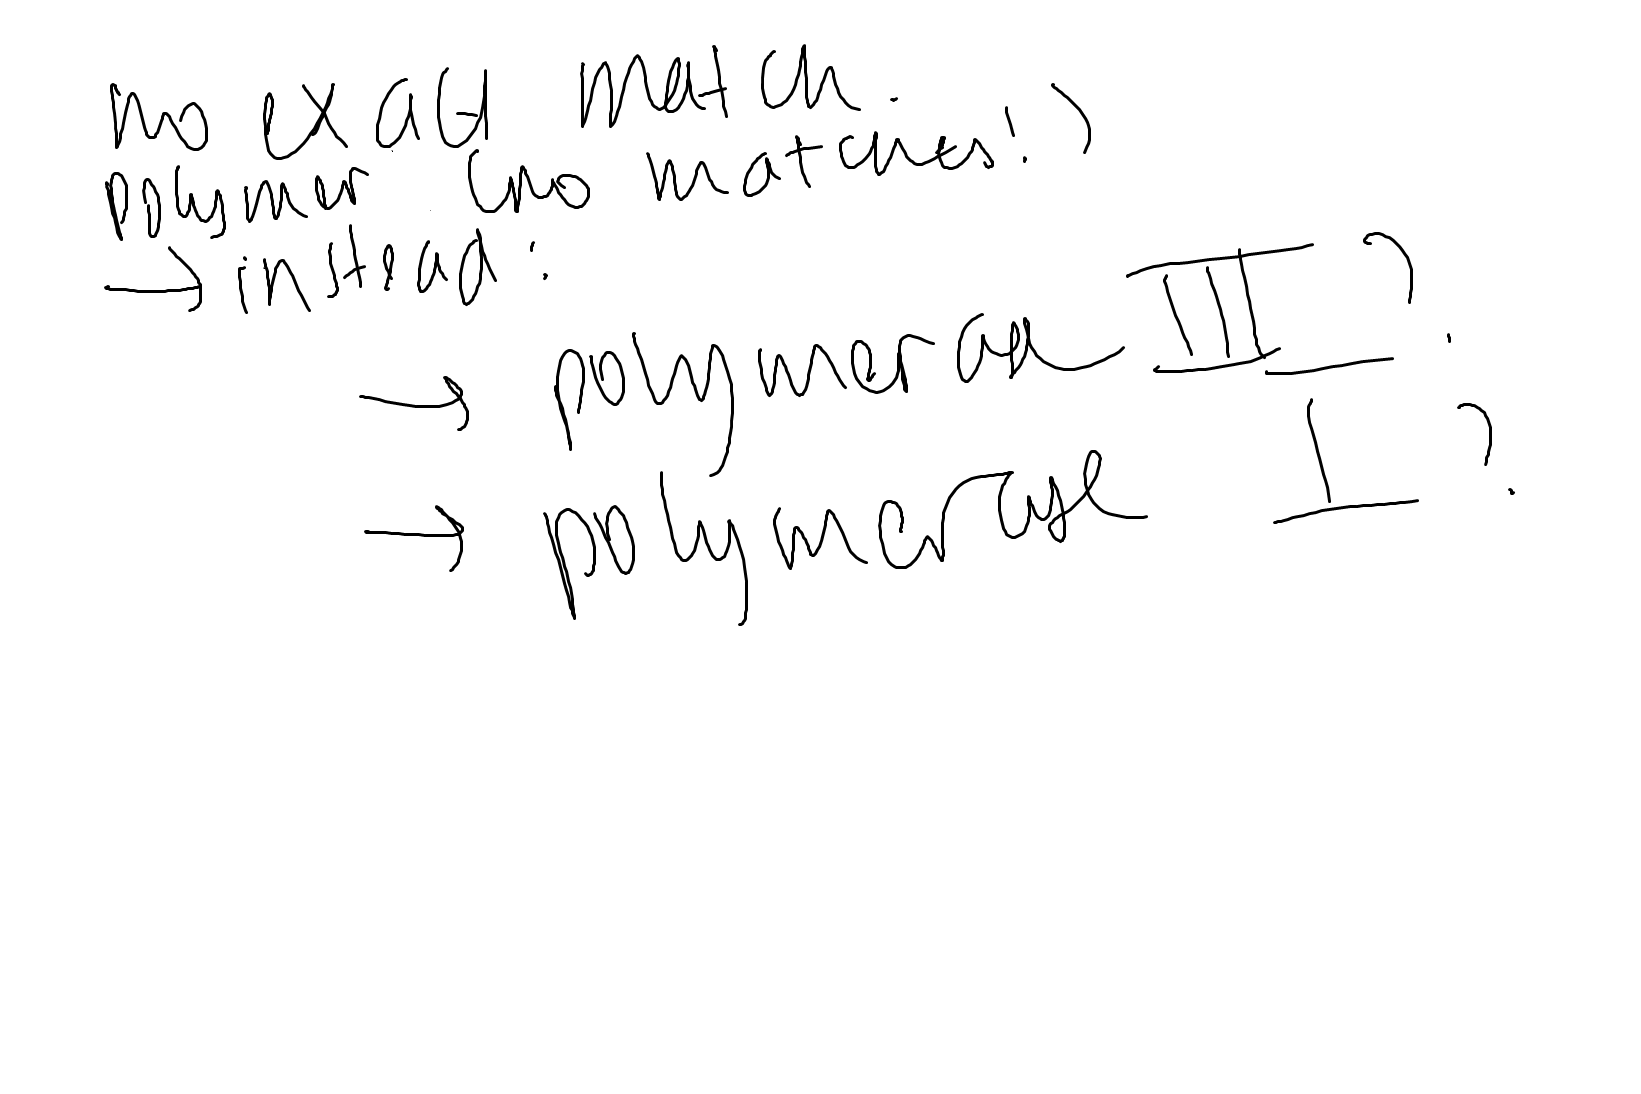 no exact match.
polymer (no matches!)
→ instead:
→ polymerase III?
→ polymerase I?